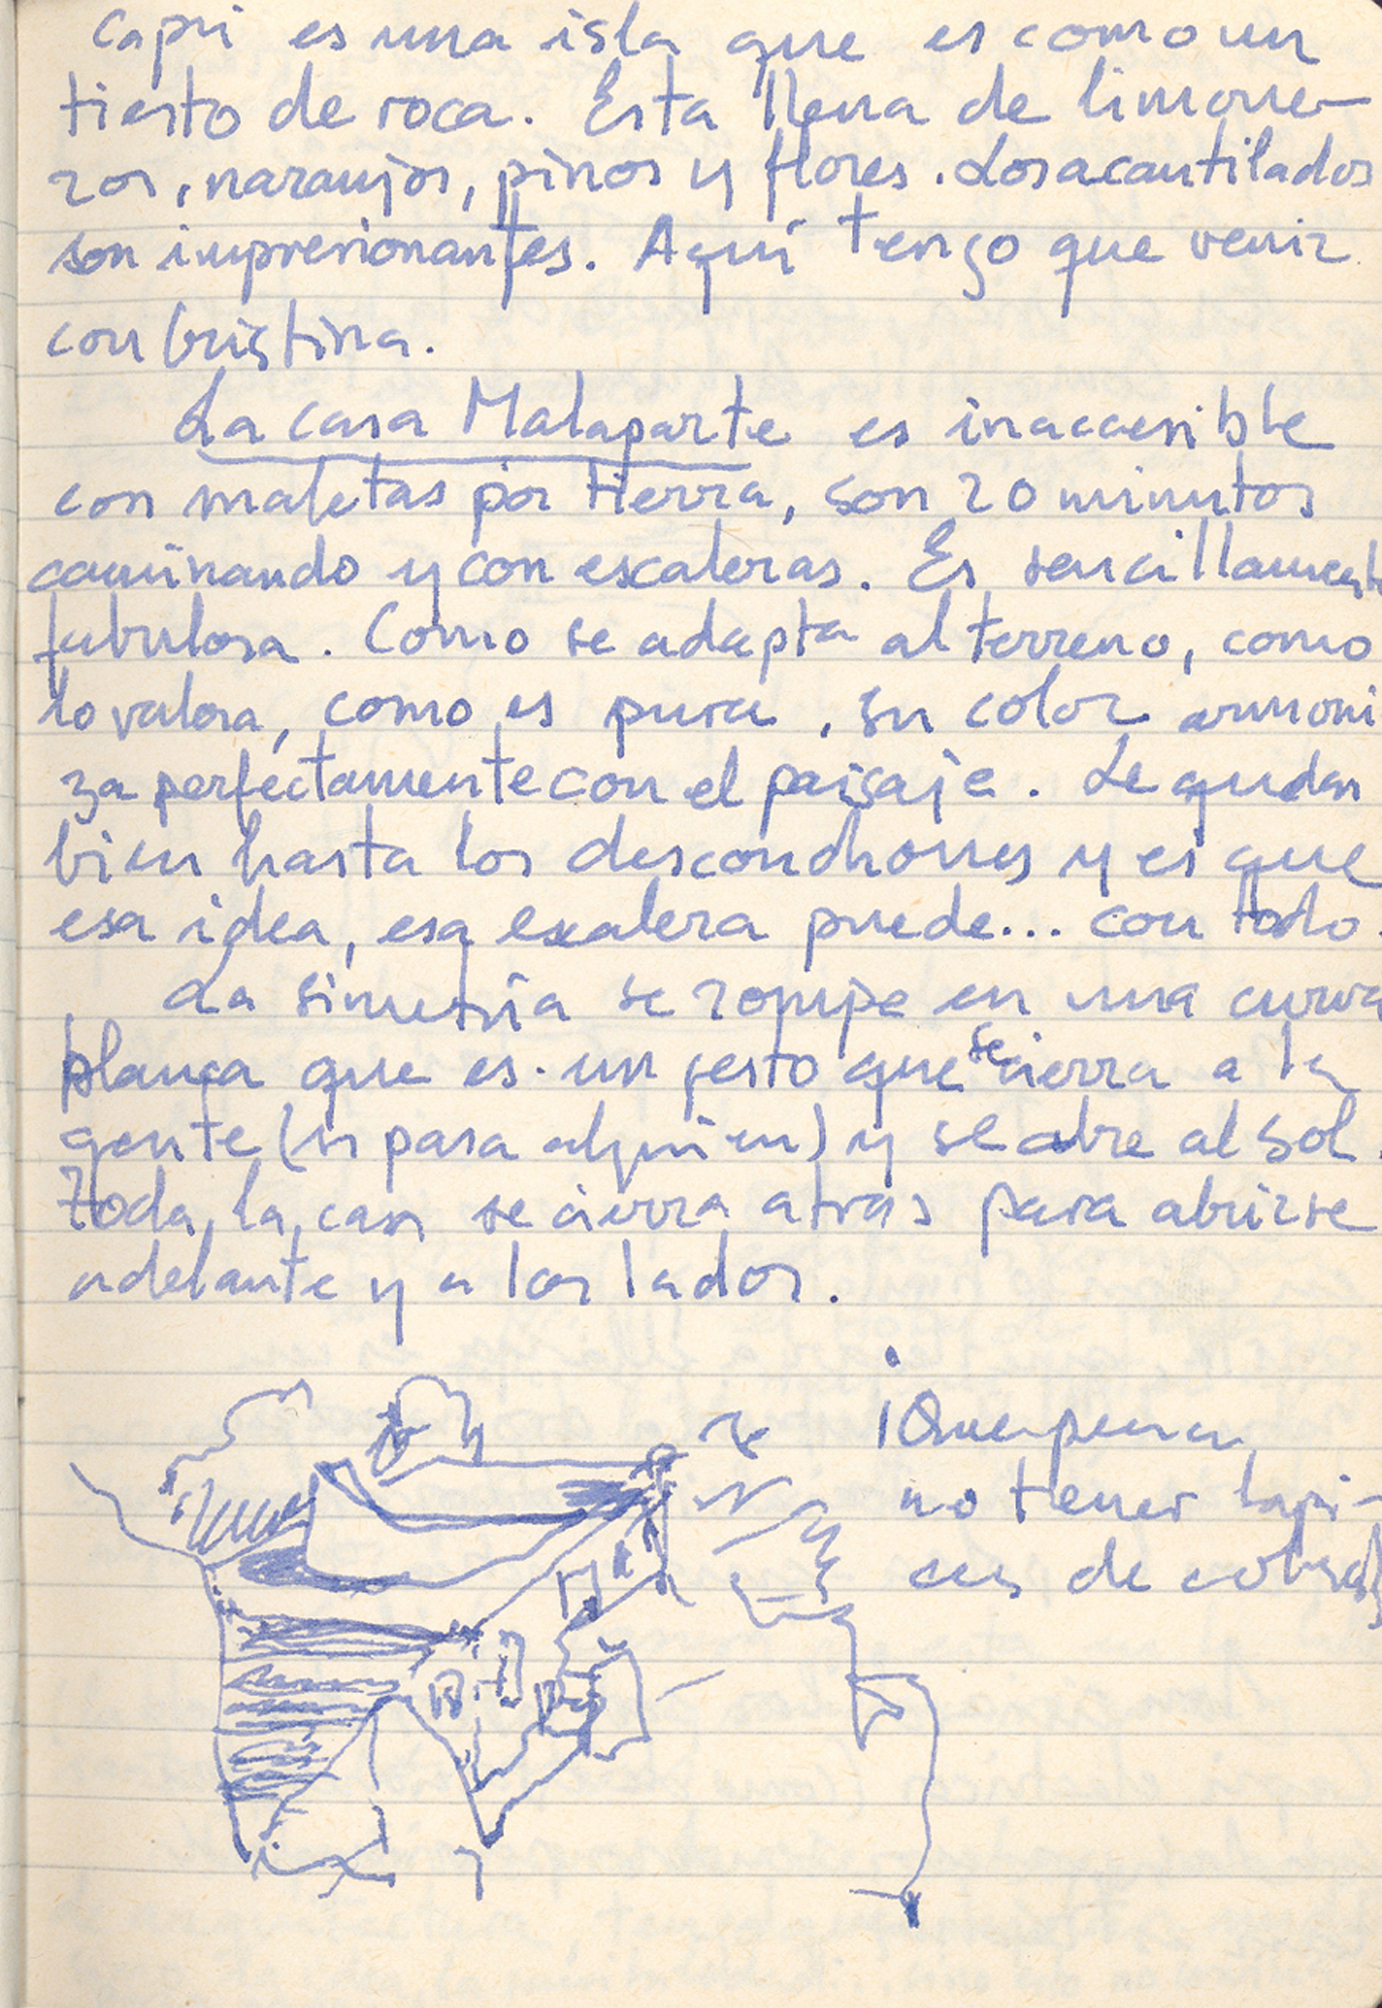 Capri es una isla que es como un
tiesto de roca. Esta llena de limone-
ros, naranjos, pinos y flores. Los acantilados
son impresionantes. Aquí tengo que venir
con Cristina.
La casa Malaparte es inaccesible
con maletas por tierra, son 20 minutos
caminando y con escaleras. Es sencillamente
fabulosa. Como se adapta al terreno, como
lo valora, como es pura, su color armoni
za perfectamente con el paisaje. Le quedan
bien hasta los desconchones y es que
esa idea, esa escalera puede... con todo.
La simetría se rompe en una curva
blanca que es un gesto que se cierra a la
gente (si pasa alguien) y se abre al sol.
Toda la casa se cierra atras para abrirse
adelante y a los lados.
¡Que pena
no tener lapi-
ces de colores!